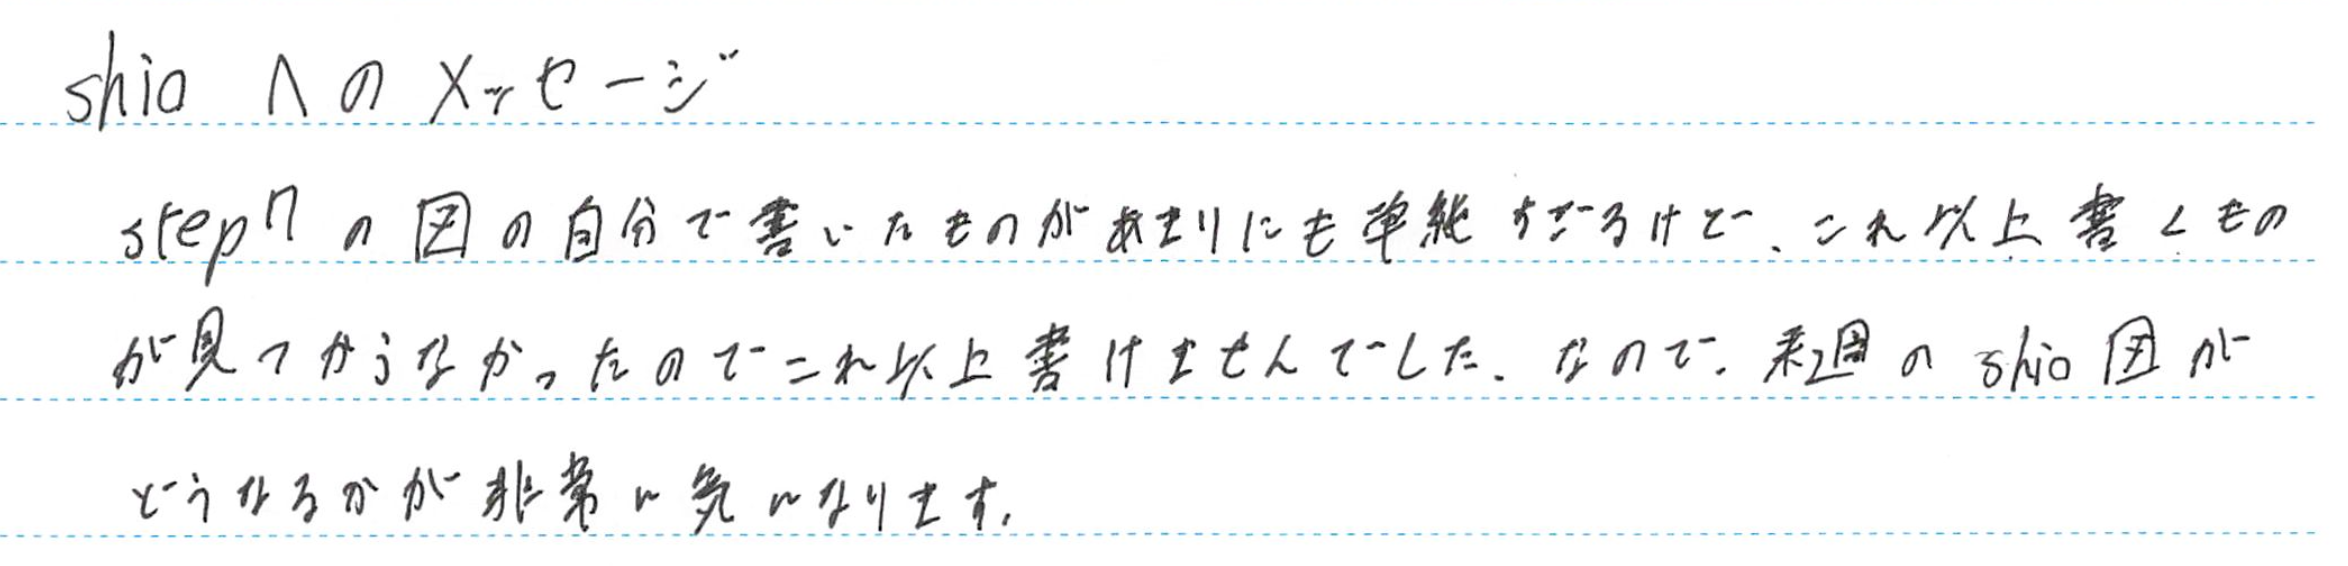 shio へのメッセージ
step7の図の自分で書いたものがあまりにも単純すぎるけど、これ以上書くもの
が見つからなかったのでこれ以上書けませんでした。なので、来週の shio 図が
どうなるかが非常に気になります。